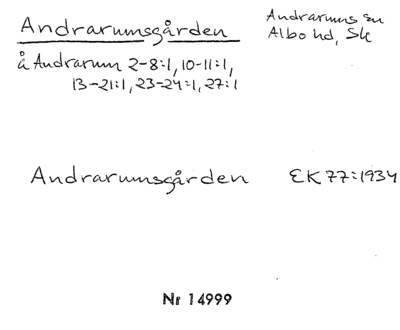 Andrarumsgården
Andrarums sn
Albo hd, Sk
å Andrarum 2-8:1, 10-11:1,
13-21:1, 23-24:1, 27:1
Andrarumsgården EK 77:1934
Nr 14999